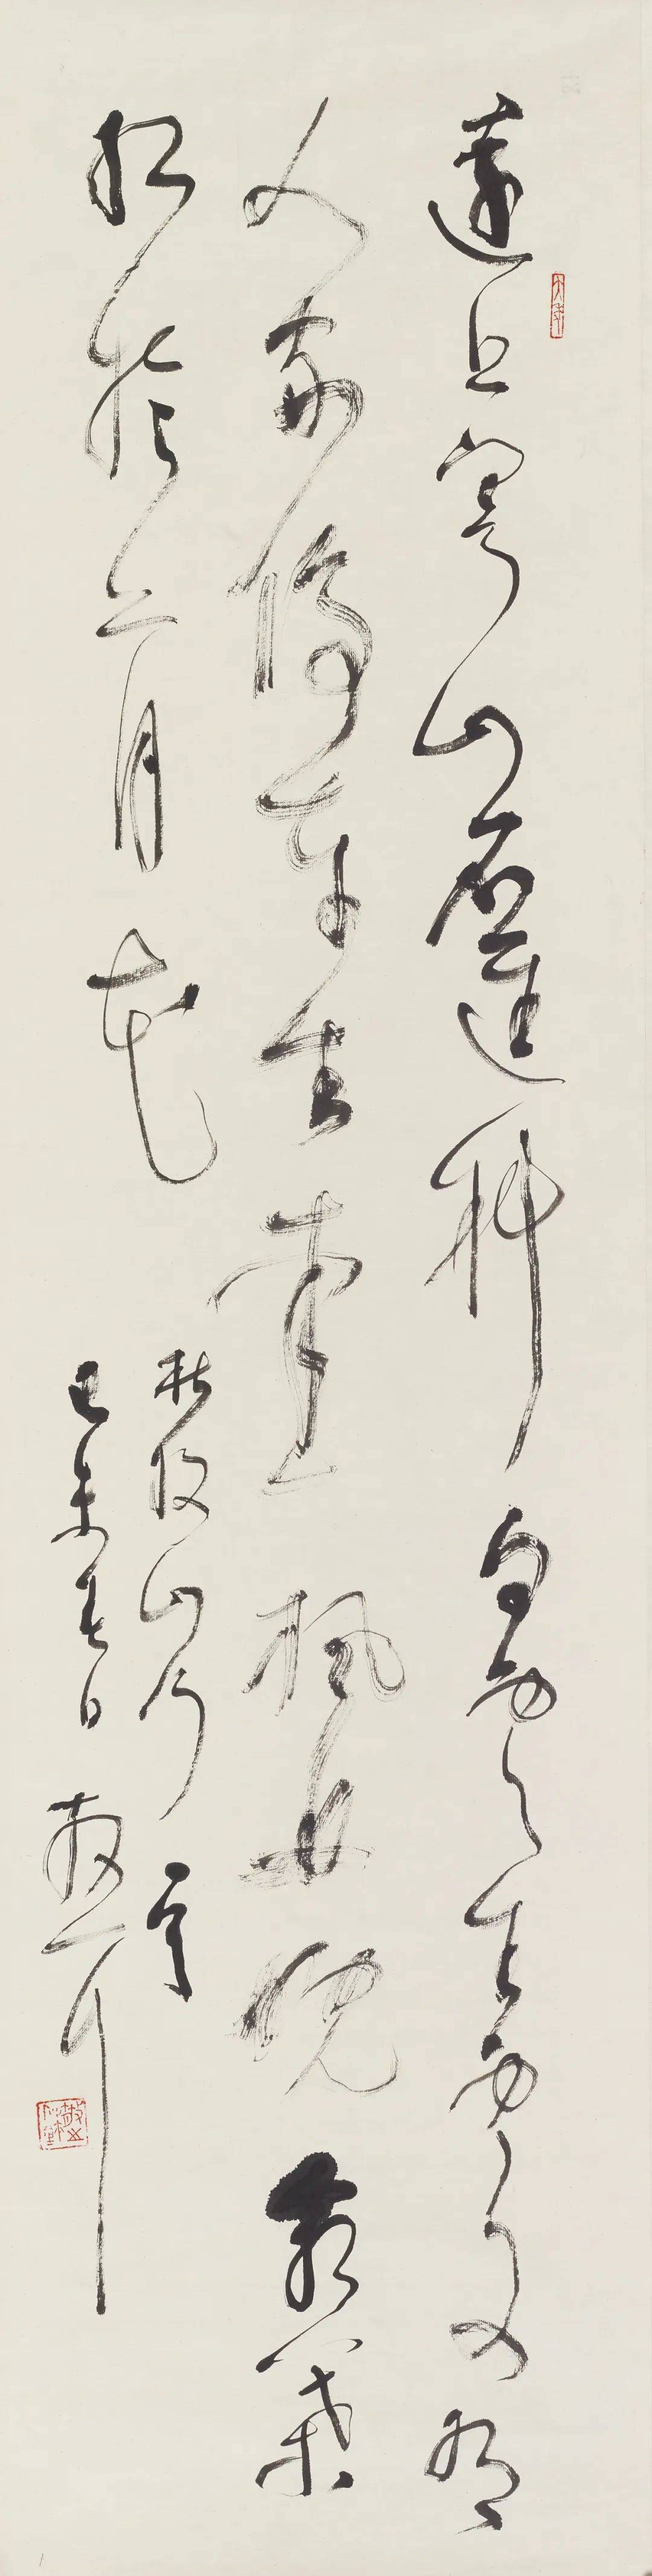 遠上寒山石逕斜白雲生處有
人家停車坐愛楓林晚霜葉
紅於二月花
杜牧山行
己未春日散耳
大年